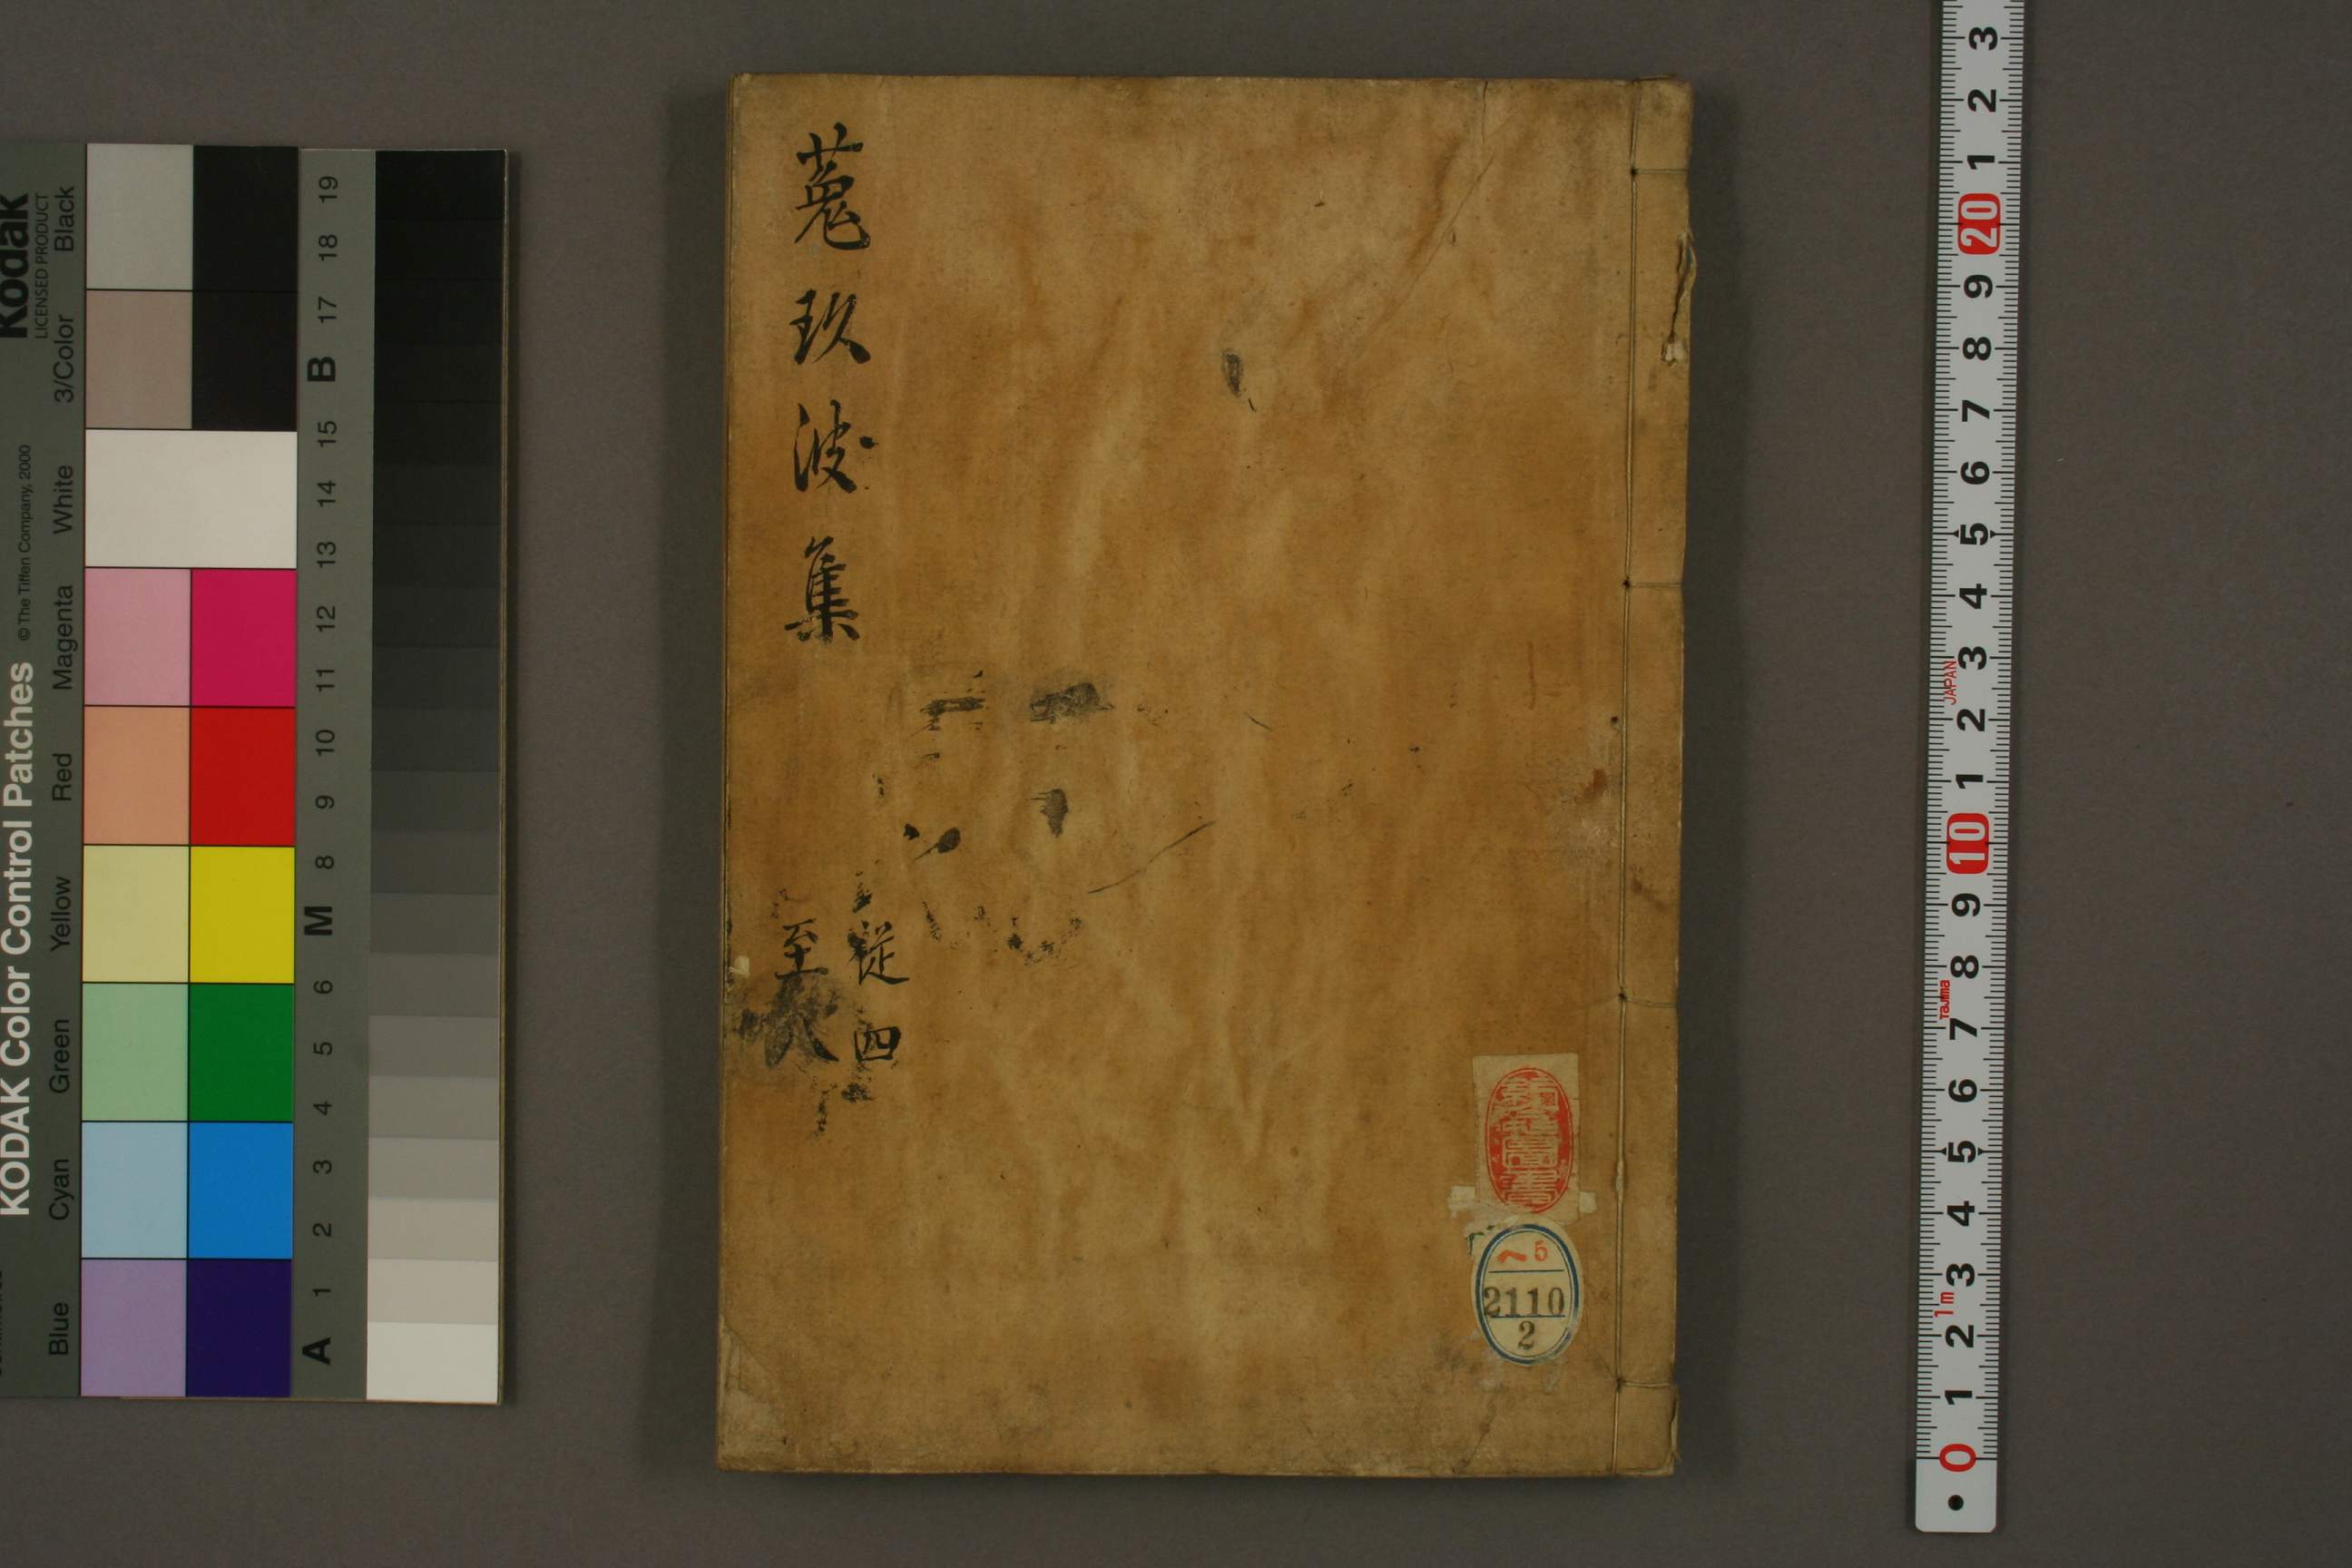 菟玖波集
従四
至
ヘ5
2110
2
Kodak
LICENSED PRODUCT
KODAK Color Control Patches
© The Tiffen Company, 2000
Blue Cyan Green Yellow Red Magenta White 3/Color Black
A 1 2 3 4 5 6 M 8 9 10 11 12 13 14 15 B 17 18 19
0 1 2 3 4 5 6 7 8 9 10 1 2 3 4 5 6 7 8 9 20 1 2 3
1m
Tajima
JAPAN